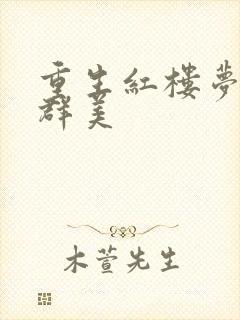 重生紅樓夢
群美
木萱先生